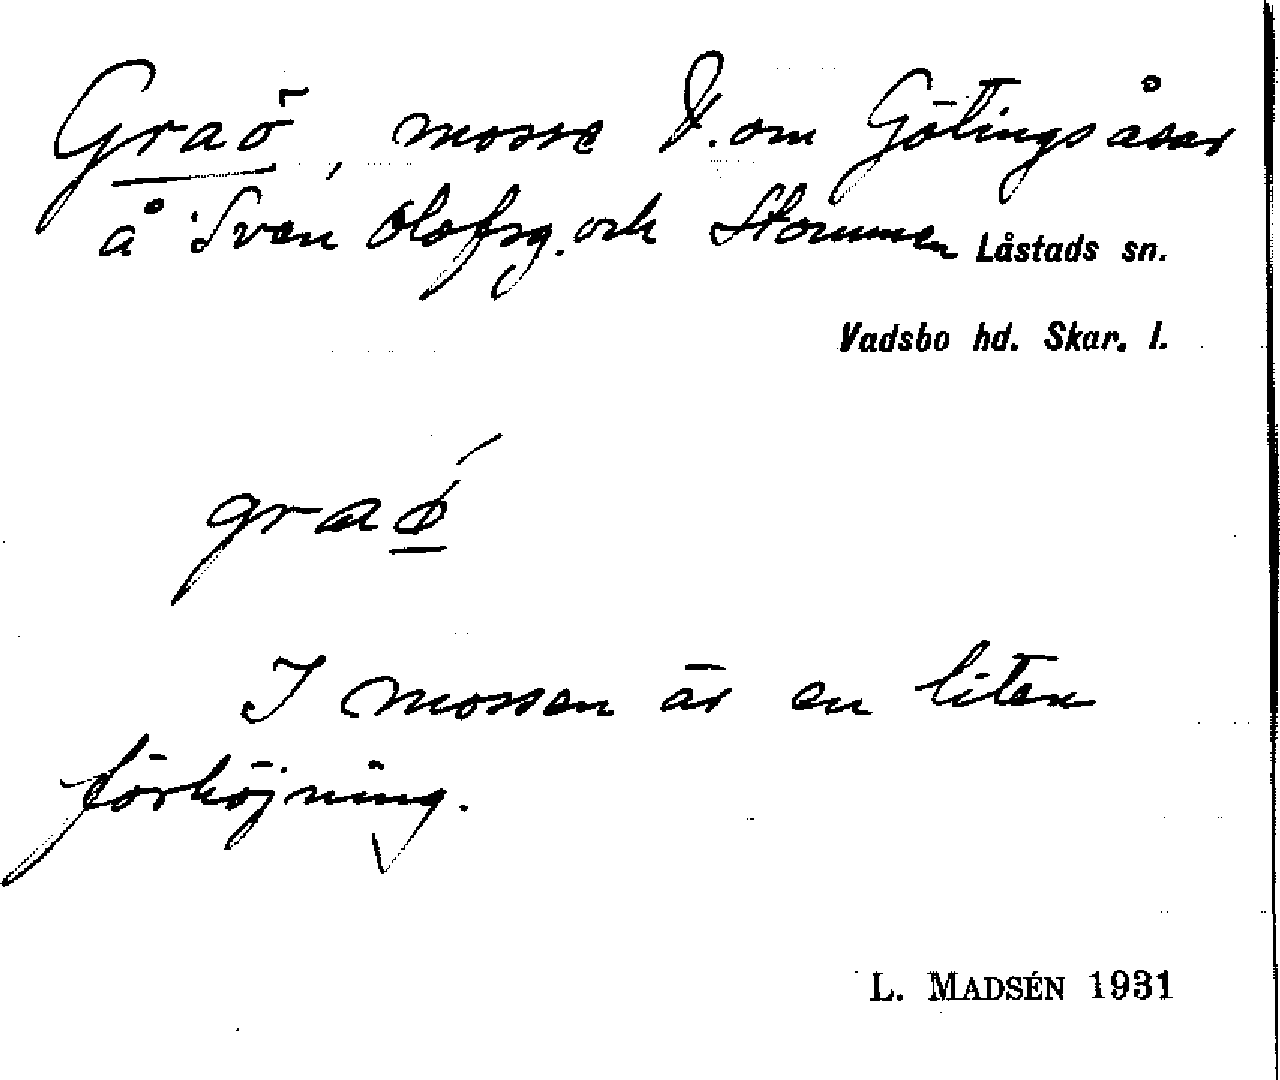 Graö, mosse V. om Götingsåsar
å Sven Olofsg. och Stommen Låstads sn.
Vadsbo hd. Skar. l.
graǿ
I mossen är en liten
förhöjning.
L. MADSÉN 1931